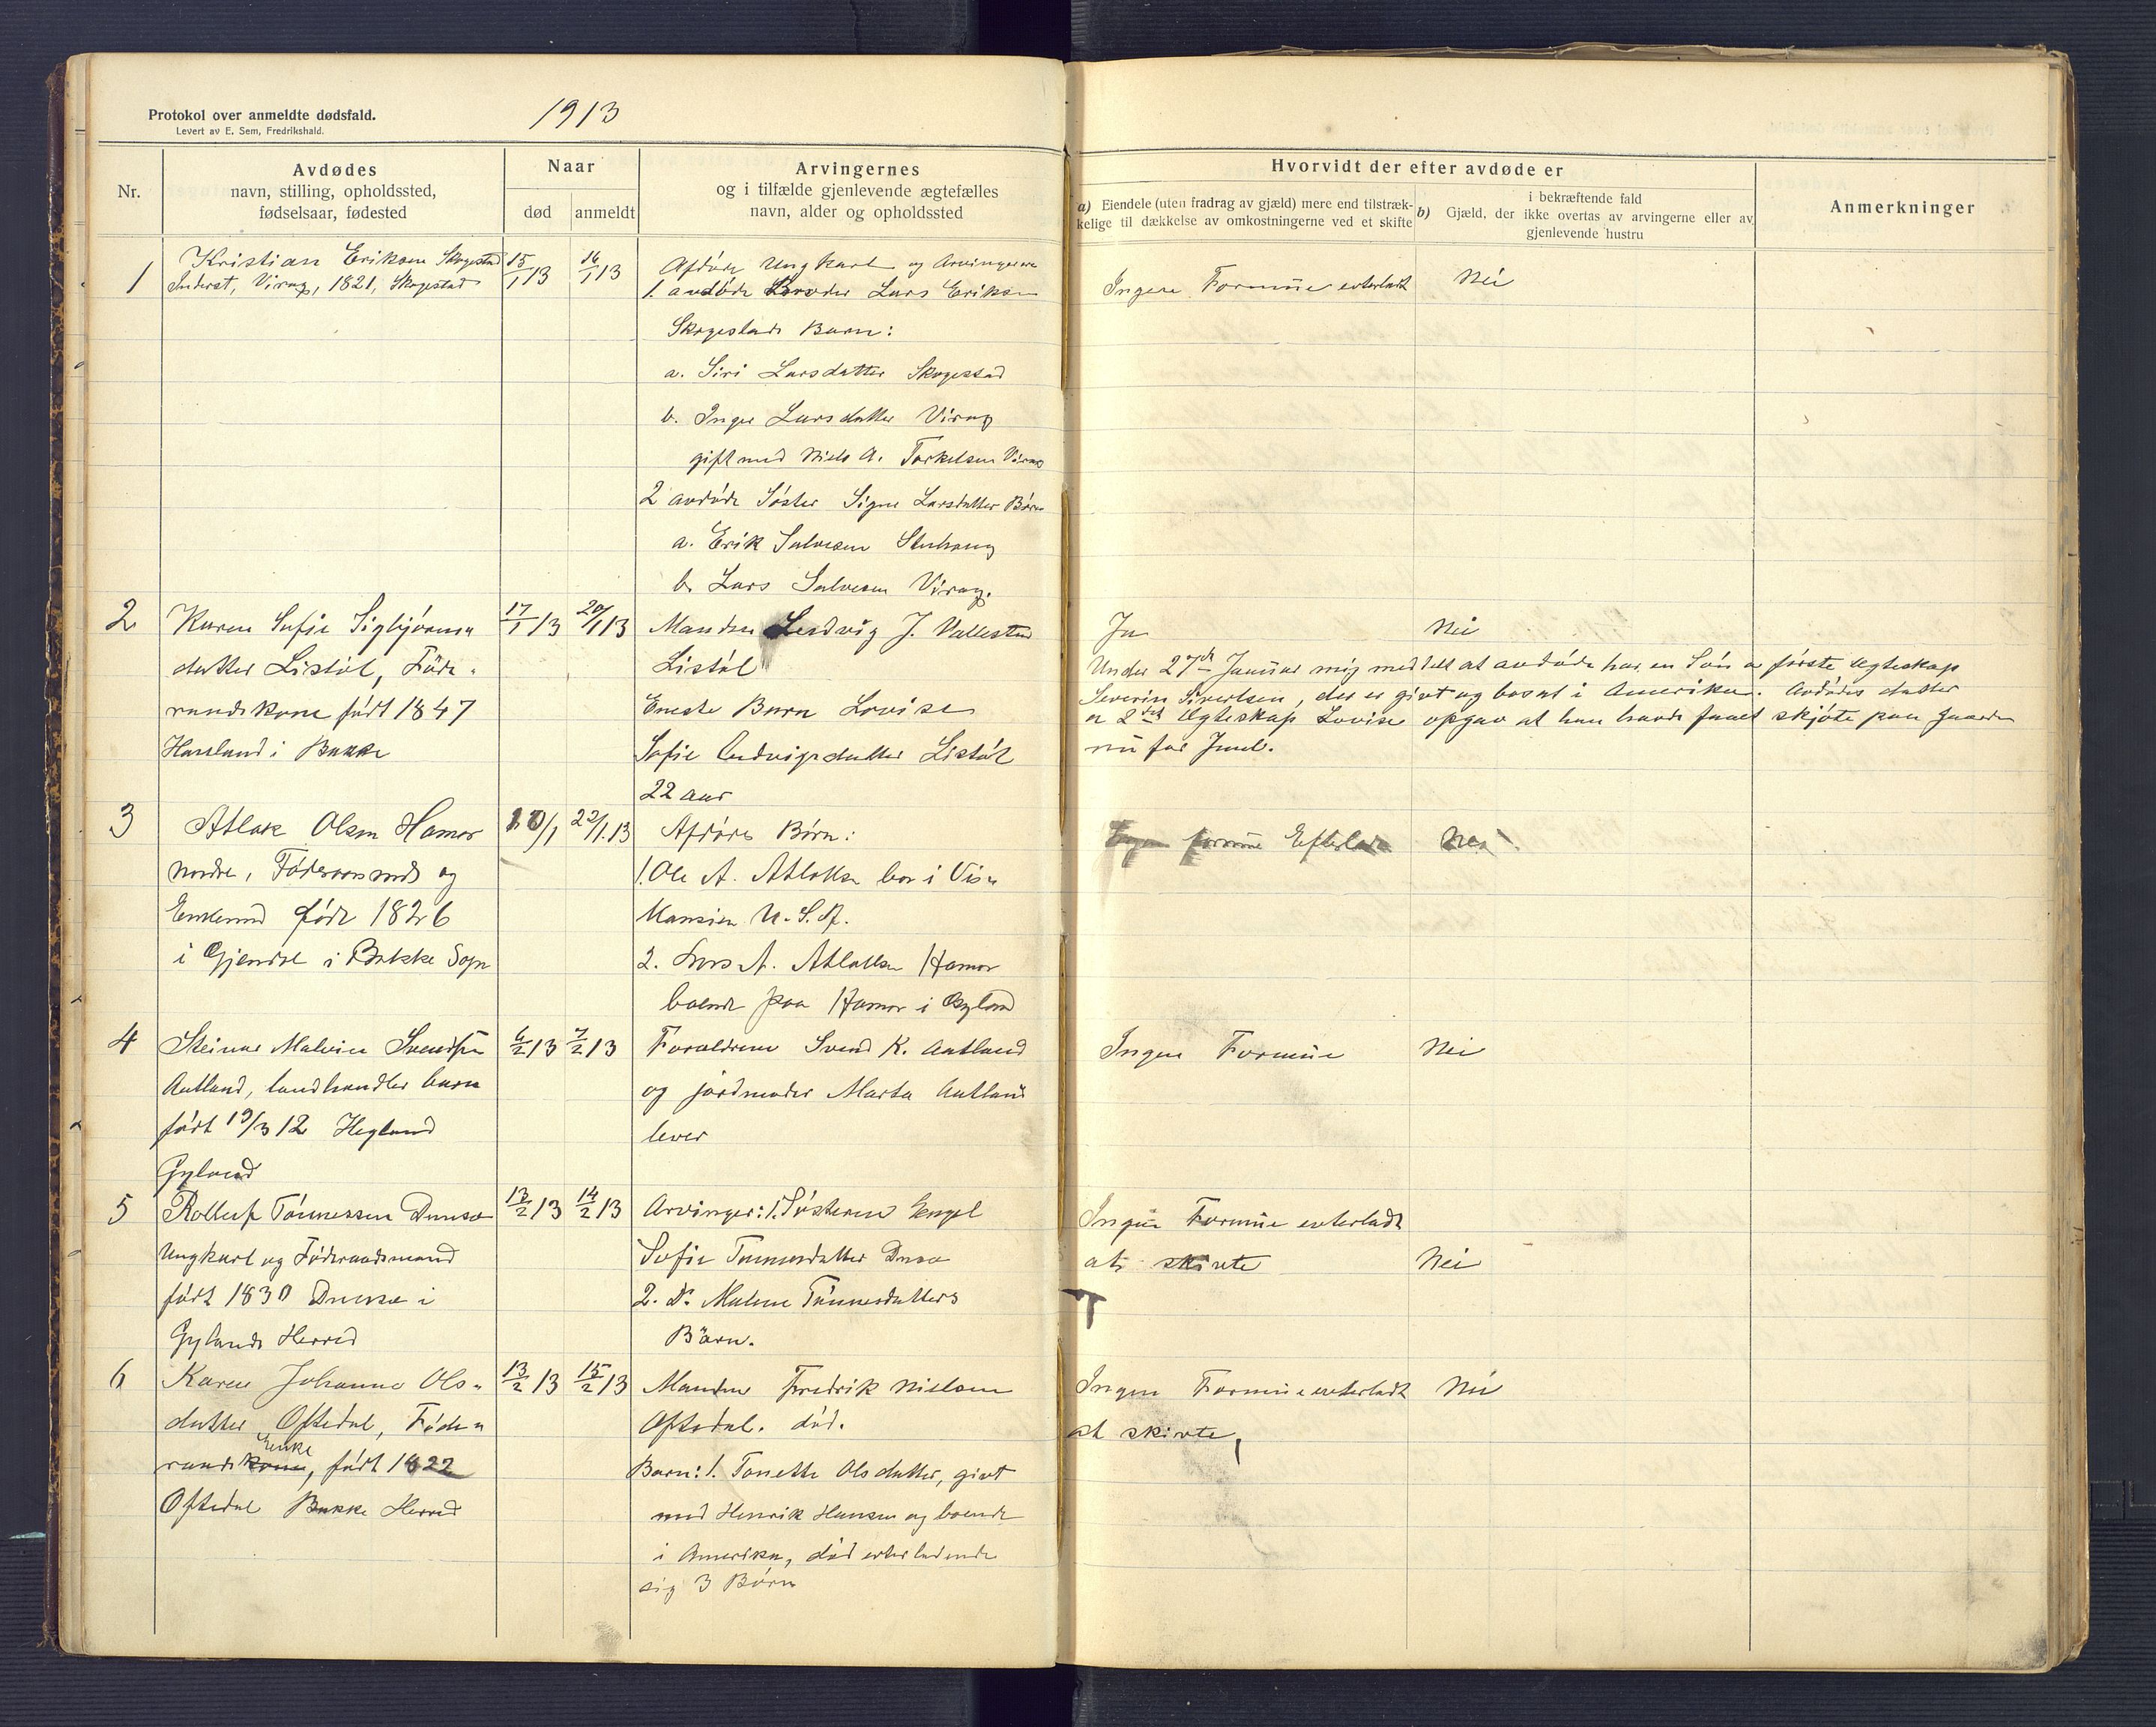 Protokol over anmeldte dødsfald.
Levert av E. Sem, Fredrikshald.
1913
Nr.
Avdødes
navn, stilling, opholdssted,
fødselsaar, fødested
Naar
død
anmeldt
Arvingernes
og i tilfælde gjenlevende ægtefælles
navn, alder og opholdssted
Hvorvidt der efter avdøde er
a) Eiendele (uten fradrag av gjæld) mere end tilstræk-
kelige til dækkelse av omkostningerne ved et skifte
i bekræftende fald
b) Gjæld, der ikke overtas av arvingerne eller av
gjenlevende hustru
Anmerkninger
1
Kristian Eriksen Skogestad
Inderst, Virag, 1821, Skogestad
15/1 13
16/1 13
Afdøde Ungkarl og Arvingerne
1. avdøde Broder Lars Eriksen
Skogestads Barn:
a. Siri Larsdatter Skogestad
b. Inger Larsdatter Virag
gift med Niels A. Torkelsen Virag
2 avdøde Søster Signe Larsdatter Børn
a. Erik Salvesen
b. Lars Salvesen Virag.
Ingen Formue efterladt
Nei
2
Karen Sofie Sigbjørns=
datter Listøl, Føde=
raadskone født 1847
Haaland i Bakke
17/1 13
20/1 13
Manden Ludvig J. Vallestad
Listøl
Eneste Barn Lovise
Sofie Ludvigsdatter Listøl
22 aar
Ja
Nei
Under 27de Januar mig meddelt at avdøde har en Søn av første Ægteskap
Severin Sivertsen, der er givt og bosat i Amerika. Avdødes datter
av 2det Ægteskap Lovise opgav at hun havde faaet skjøte paa gaarden
nu før Juul.
3
Atlak Olsen Hamar
nordre, Føderaadsmd og
Enkemd født 1826
i Gjendal i Bakke Sogn
20/1
22/1. 13
Afdødes Børn:
1. Ole A. Atlaksen bor i Vis=
Kansien U. S. A.
2. Lars A. Atlaksen Hamar
boende paa Hamar i Gyland
Ingen formue Efterladt
Nei
4
Steinar Malvin Svendsen
Aatland, landhandler barn
født 19/3 12 Hegland
Gyland
6/2 13
7/2 13
Foraldrene Svend K. Aatland
og jordmoder Marta Aatland
lever
Ingen Formue
Nei
5
Rolleif Tønnessen Dunsæ
Ungkarl og Føderaadsmand
født 1830 Dunsæ i
Gylands Herred
13/2 13
14/2 13
Arvinger: 1. Søsteren Engel
Sofie Tønnesdatter Dunsæ
2. Do Malene Tønnesdatters
Børn.
Ingen Formue efterladt
at skivte
Nei
6
Karen Johanne Ols=
datter Oftedal, Føde=
raads kone Enke, født 1822
Oftedal Bakke Herred
13/2 13
15/2 13
Manden Fredrik Nielsen
Oftedal. død.
Barn: 1. Tonette Olsdatter, givt
med Henrik Hansen og boende
i Amerika, død efterladende
sig 3 Børn
Ingen Formue efterladt
at skivte,
Nei